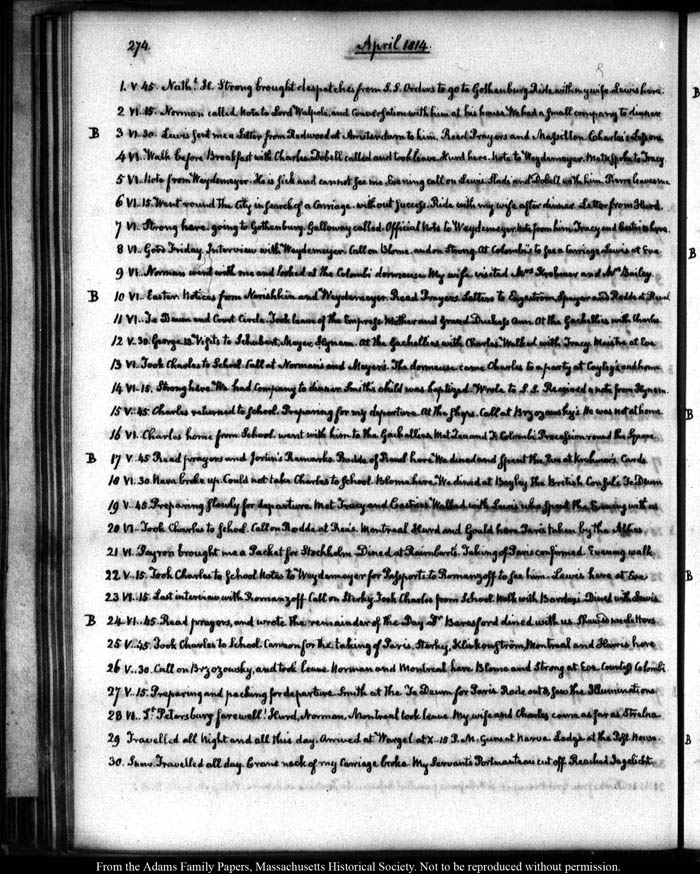 274.
April 1814.
1. V. 45. Nath.l H. Strong brought despatches from S.S. Orders to go to Gothenburg. Ride with my wife. Lewis here.
2 VI. 15. Norman called. Note to Lord Walpole, and Conversation with him at his house. We had a small company to dinner
B 3 VI. 30. Lewis sent me a Letter from Redwood at Amsterdam to him. Read Prayers and Massillon. Charles's Lessons
4 VI. Walk before Breakfast with Charles. Dobell called and took leave. Hurd here. Note to Weydemeyer. Met & spoke to Tracy.
5 VI. Note from Weydemeyer. He is sick and cannot see me. Evening call on Lewis. Slade and Dobell with him. Pierre leaves me
6 VI. 15. Went round the City in search of a Carriage without success. Ride with my wife after dinner. Letter from Hurd.
7 VI. Strong here, going to Gothenburg. Galloway called. Official Note to Weydemeyer. Note from him. Tracy and here.
8 VI. Good Friday. Interview with Weydemeyer. Call on Blome, and on Strong. At Colombi's to see a Carriage. Lewis at Eve
9 VI. Norman went with me and looked at the Colombi dormeuse. My wife visited Mrs Krehmer and Mrs Bailey.
B 10 VI. Easter. Notices from Narishkin and Weydemeyer. Read Prayers. Letters to Engestrom, Speyer and Rodde at Reval
11 VI. Te Deum and Court Circle. Took leave of the Empress Mother and Grand Duchess Ann. At the with Charles.
12 V. 30. George. 13. Visits to Schubert, Meyer, Hynam. At the with Charles. Walked with Tracy. at Eve
13 VI. Took Charles to School. Call at Norman's and Meyer's. The dormeuse came. Charles to a party at Cayley's and home
14 VI. 15. Strong here. We had Company to dinner. Smith's child was baptized. Wrote to S.S. Received a note from Hynam.
15 V. 45. Charles returned to School. Preparing for my departure. At the shops. Call at Brzozowsky's. He was not at home
16 VI. Charles home from School. Went with him to the Met and Colombi. Procession round the
B 17 V. 45 Read prayers and Jortin's Remarks. Rodde of Reval here. We dined and spent the Eve at Krehmer's. Cards
18 VI. 30. Neva broke up. Could not take Charles to School. Blome here. We dined at Bayley the British Consul's. Te Deum
19 V. 45. Preparing slowly for departure. Met Tracy and Walked with Lewis who spent the Evening with us
20 VI. Took Charles to School. Call on Rodde at Montreal Hurd and Gould here. Paris taken by the Allies.
21 VI. Payron brought me a Packet for Stockholm. Dined at Raimbert's. Taking of Paris confirmed. Evening walk
22 V. 15. Took Charles to School. Notes to Weydemeyer for Passports, to Romanzoff to see him. Lewis here at Eve
23 VI. 15. Last interview with Romanzoff. Call on Storky. Took Charles from School. Walk with Bardaxi. Dined with Lewis
B 24 VI. 45. Read prayers, and wrote the remainder of the Day. Dr Beresford dined with us. Letters
25 V. 45. Took Charles to School. Cannon for the taking of Paris. Storky, Montreal and Harris here
26 V. 30. Call on Brzozowsky, and took leave. Norman and Montreal here. Blome and Strong at Eve. Countess Colombi
27 V. 15. Preparing and packing for departure. Smith at the Te Deum for Paris. Rode out & saw the Illuminations
28 VI. St Petersburg farewell! Hurd, Norman, Montreal took leave. My wife and Charles came as far as Strelna
29 Travelled all Night and all this day. Arrived at Wargel at X. 15 P.M. at Narva. Lodge at the Post House.
30. Travelled all day. Crane neck of my Carriage broke. My Servant's Portmanteau cut off. Reached Jagelicht
From the Adams Family Papers, Massachusetts Historical Society. Not to be reproduced without permission.